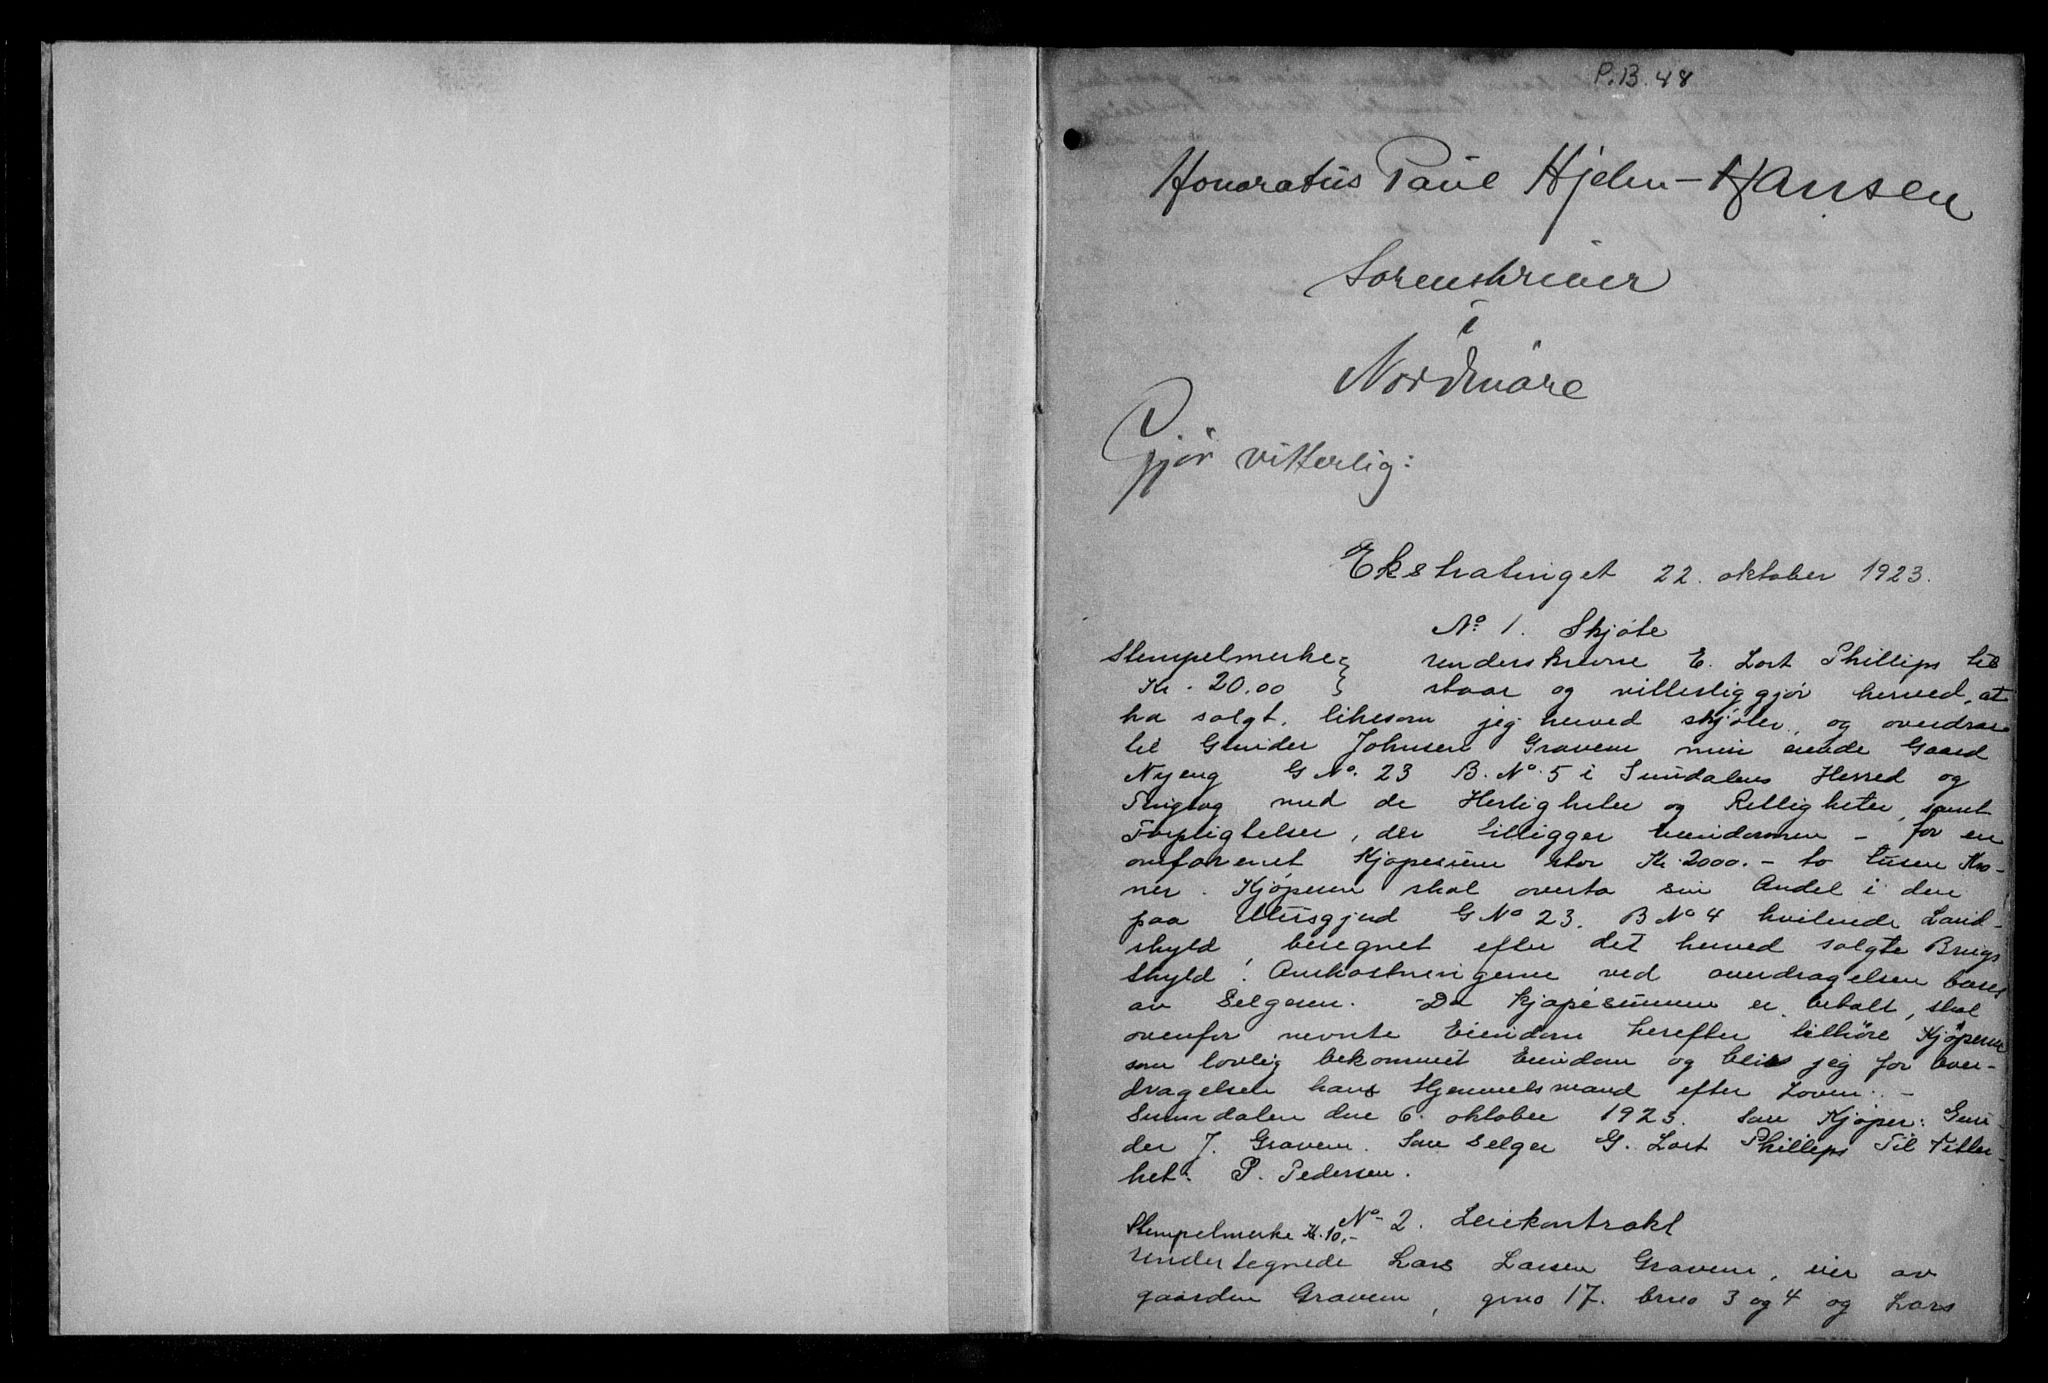 P.B. 48
Honoratus Paul Hjelm-Hansen
Sorenskriver
i
Nordmøre
Gjør vitterlig:
Ekstratinget 22. oktober 1923.
No 1. Skjøte
Stempelmerke } Underskrevne E. Lort Phillips til
Kr. 20.00 } staar og vitterliggjør herved, at
ha solgt, likesom jeg herved skjøter, og overdrar
til Gunder Johnsen Gravem min eiende Gaard
Nyeng G No. 23 B. No. 5 i Sundalens Herred og
Tinglag med de Herligheter og Rettigheter, samt
Forpligtelser, der tilligger Eiendommen – for en
omforenet Kjøpesum stor Kr. 2000.– to tusen Kro-
ner. Kjøperen skal overta sin Andel i den
paa G No 23. B No 4 hvilende Land-
skyld beregnet efter det herved solgte Brugs
skyld. Omkostningerne ved overdragelsen bæres
av Selgeren. – Da Kjøpesummen er betalt, skal
ovenfor nevnte Eiendom herefter tilhøre Kjøperen
som lovlig bekommet Eiendom og blir jeg for Over-
dragelsen hans Hjemmelsmand efter Loven. –
Sunndalen den 6. oktober 1923. Som Kjøper: Gun-
der J. Gravem. Som Selger G. Lort Phillips Til Vitter-
het: P. Pedersen.
No 2. Leiekontrakt
Stempelmerke Kr. 10.–
Undertegnede Lars Larsen Gravem, eier av
gaarden Gravem, gno 17. bno 3 og 4 og Lars